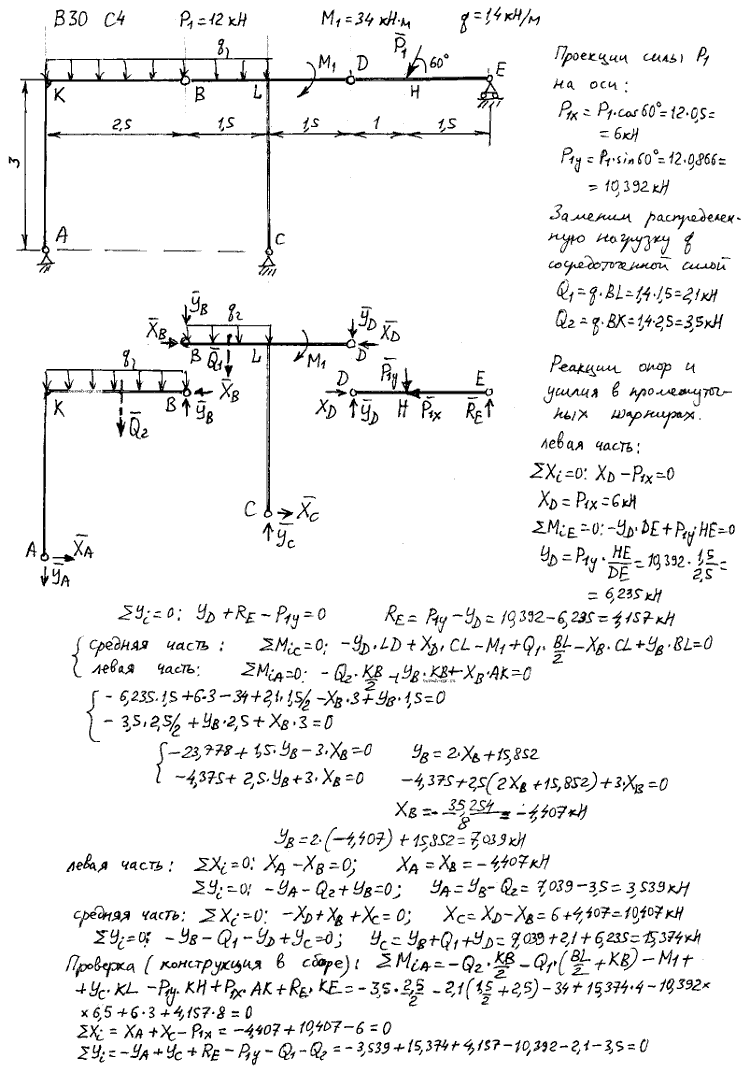 В30 С4 P₁=12 кН M₁=34 кН·м q=1,4 кН/м
q₂ M₁ D P̄₁ 60° E
K B L H
2,5 1,5 1,5 1 1,5
3
A C
Проекции силы P₁
на оси:
P₁ₓ = P₁·cos60°=12·0,5=
= 6кН
P₁y = P₁·sin60°=12·0,866=
= 10,392 кН
Заменим распределен-
ную нагрузку q
сосредоточенной силой
Q₁ = q·BL=1,4·1,5=2,1кН
Q₂ = q·BK=1,4·2,5=3,5кН
Ȳ_B q₂ Ȳ_D X̄_D
X̄_B B Q̄₁ L M₁ D
q₂ X̄_B P̄₁y
K B Ȳ_B D H E
Q̄₂ X_D Ȳ_D P̄₁ₓ R̄_E
C X̄_C
Ȳ_C
A X̄_A
Ȳ_A
Реакции опор и
усилия в промежуточ-
ных шарнирах.
левая часть:
ΣXᵢ=0: X_D – P₁ₓ=0
X_D = P₁ₓ = 6кН
ΣMᵢE=0: –Y_D·DE + P₁y·HE=0
Y_D = P₁y·HE/DE = 10,392·1,5/2,5 =
= 6,235 кН
ΣYᵢ=0: Y_D + R_E – P₁y = 0 R_E = P₁y – Y_D = 10,392 – 6,235 = 4,157 кН
средняя часть: ΣMᵢC=0: –Y_D·LD + X_D·CL – M₁ + Q₁·BL/2 – X_B·CL + Y_B·BL=0
левая часть: ΣMᵢA=0: –Q₂·KB/2 + Y_B·KB + X_B·AK=0
–6,235·1,5+6·3–34+2,1·1,5/2 –X_B·3+Y_B·1,5=0
–3,5·2,5/2 + Y_B·2,5 + X_B·3=0
–23,778 + 1,5·Y_B – 3·X_B=0 Y_B = 2·X_B + 15,852
–4,375 + 2,5·Y_B + 3·X_B=0 –4,375+2,5(2X_B+15,852)+3·X_B=0
X_B = –35,254/8 = –4,407кН
Y_B = 2·(–4,407) + 15,852 = 7,039кН
левая часть: ΣXᵢ=0: X_A – X_B=0; X_A = X_B = –4,407кН
ΣYᵢ=0: –Y_A – Q₂ + Y_B=0; Y_A = Y_B – Q₂ = 7,039–3,5 = 3,539 кН
средняя часть: ΣXᵢ=0: –X_D + X_B + X_C = 0; X_C = X_D – X_B = 6 + 4,407 = 10,407кН
ΣYᵢ=0: –Y_B – Q₁ – Y_D + Y_C=0; Y_C = Y_B + Q₁ + Y_D = 7,039 + 2,1 + 6,235 = 15,374кН
Проверка (конструкция в сборе): ΣMᵢA = –Q₂·KB/2 – Q₁·(BL/2 + KB) – M₁ +
+ Y_C·KL – P₁y·KH + P₁ₓ·AK + R_E·KE = –3,5·2,5/2 – 2,1(1,5/2 + 2,5) – 34 + 15,374·4 – 10,392×
×6,5 + 6·3 + 4,157·8 = 0
ΣXᵢ = X_A + X_C – P₁ₓ = –4,407 + 10,407 – 6 = 0
ΣYᵢ = –Y_A + Y_C + R_E – P₁y – Q₁ – Q₂ = –3,539 + 15,374 + 4,157 – 10,392 – 2,1 – 3,5 = 0